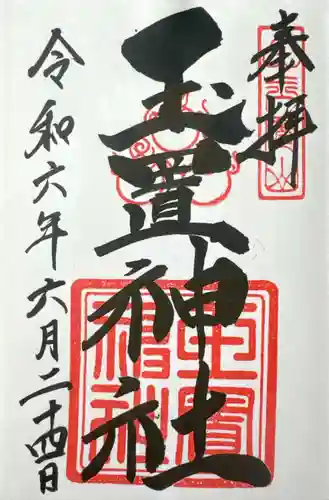 奉拝
玉置神社
令和六年六月二十四日
玉置神社